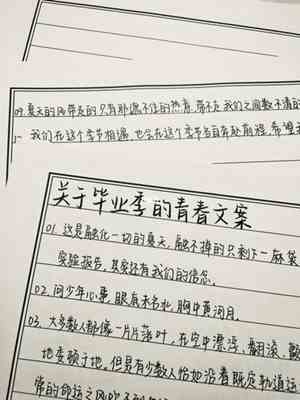 09.夏天的风带走的只有那遮不住的热意,带不走我们之间数不清的
我们在这个季节相遇,也会在这个季节各自奔赴前程,希望
关于毕业季的青春文案
01.这是融化一切的夏天,融不掉的只剩下一麻袋
实验报告,其实还有我们的信念。
02.问少年心事,眼底未名水,胸中黄河月。
03.大多数人都像一片片落叶,在空中漂浮、翻滚、颤
地委顿于地。但是有少数人恰如沿着既定轨道运
常的命运之风吹不到